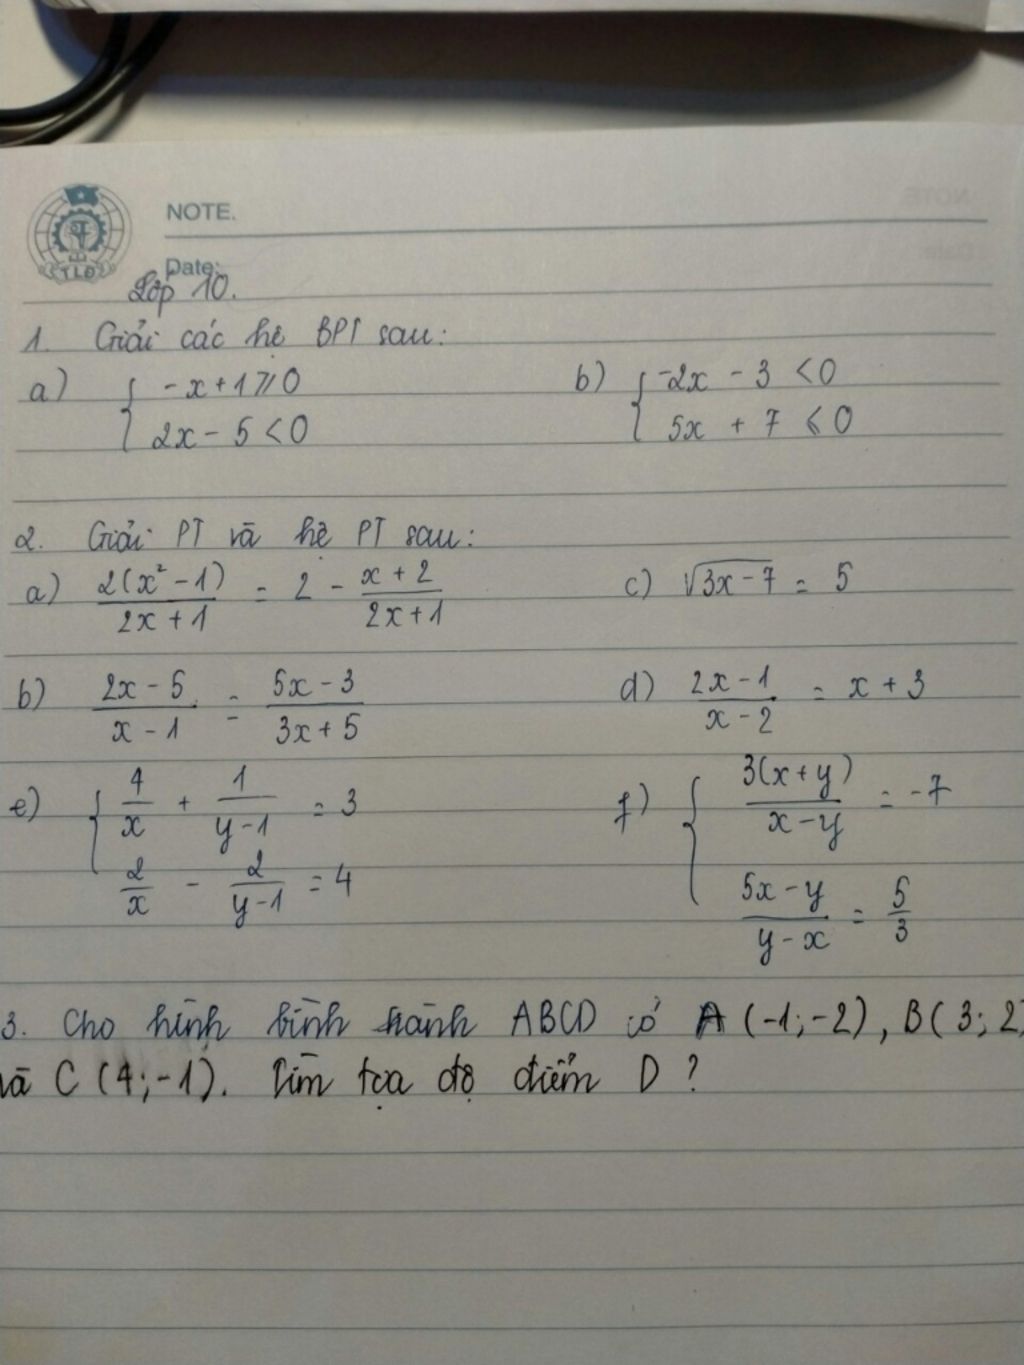 NOTE.
Date:
TLĐ
Lớp 10.
1. Giải các hệ BPT sau:
a) { -x + 1 ⩾ 0 b) { -2x - 3 < 0
2x - 5 < 0 5x + 7 ⩽ 0
2. Giải PT và hệ PT sau:
a) 2(x² - 1) / 2x + 1 = 2 - x + 2 / 2x + 1 c) √3x - 7 = 5
b) 2x - 5 / x - 1 = 5x - 3 / 3x + 5 d) 2x - 1 / x - 2 = x + 3
e) { 4/x + 1/y-1 = 3 f) { 3(x+y) / x-y = -7
2/x - 2/y-1 = 4 5x - y / y - x = 5/3
3. Cho hình bình hành ABCD có A (-1; -2), B( 3; 2)
và C (4; -1). Tìm tọa độ điểm D ?